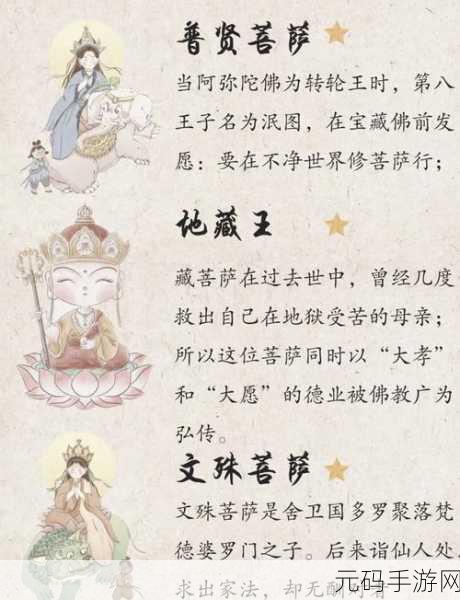 普贤菩萨
当阿弥陀佛为转轮王时，第八
王子名为泯图，在宝藏佛前发
愿：要在不净世界修菩萨行；
地藏王
藏菩萨在过去世中，曾经几度
救出自己在地狱受苦的母亲；
所以这位菩萨同时以“大孝”
和“大愿”的德业被佛教广为
弘传。
文殊菩萨
文殊菩萨是舍卫国多罗聚落梵
德婆罗门之子。后来诣仙人处
求出家法，却无酬对者
元码手游网